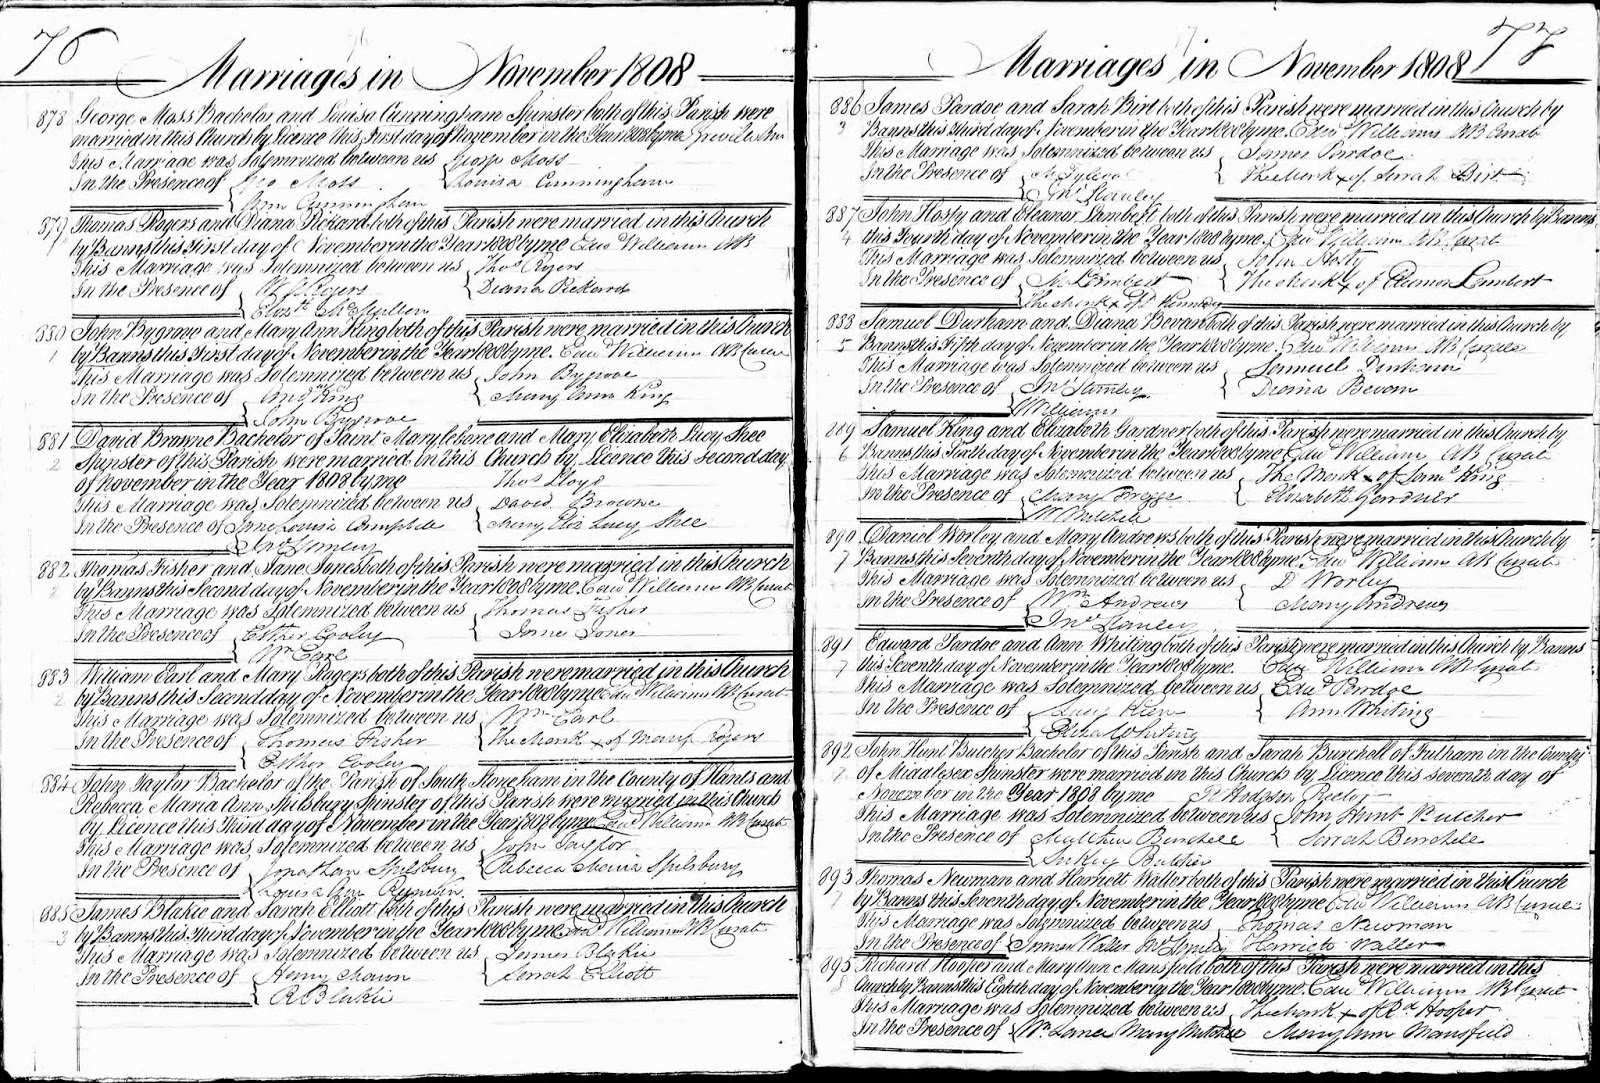 76
Marriages in November 1808
878 George Moss Bachelor and Louisa Cunningham Spinster both of this Parish were
married in this Church by Licence this first day of November in the Year 1808 by me
This Marriage was Solemnized between us George Moss
In the Presence of Geo Moss Louisa Cunningham
Ann Cunningham
879 Thomas Rogers and Diana Rickard both of this Parish were married in this Church
1 by Banns this First day of November in the Year 1808 by me Edwd Williams AB
This Marriage was Solemnized between us Thos Rogers
In the Presence of W Rogers Diana Rickard
Elizth McMullen
880 John Bygrave and Mary Ann King both of this Parish were married in this Church
1 by Banns this First day of November in the Year 1808 by me. Edwd Williams AB Curate
This Marriage was Solemnized between us John Bygrove
In the Presence of King Mary Ann King
John Bygrove
881 David Browne Bachelor of Saint Marylebone and Mary Elizabeth Lucy Shee
2 Spinster of this Parish were married in this Church by Licence this second day
of November in the Year 1808 by me Thos Lloyd
This Marriage was Solemnized between us David Browne
In the Presence of Jane Louisa Campbell Mary Eliz Lucy Shee
Jno Stanley
882 Thomas Fisher and Jane Jones both of this Parish were married in this Church
2 by Banns this Second day of November in the Year 1808 by me. Edwd Williams AB Curate
This Marriage was Solemnized between us Thomas Fisher
In the Presence of Esther Cooley Jane Jones
Wm Earl
883 William Earl and Mary Rogers both of this Parish were married in this Church
2 by Banns this Second day of November in the Year 1808 by me Edwd Williams AB Curate
This Marriage was Solemnized between us Wm Earl
In the Presence of Thomas Fisher The Mark x of Mary Rogers
Esther Cooley
884 John Taylor Bachelor of the Parish of South Stoneham in the County of Hants and
Rebecca Maria Ann Spilsbury Spinster of this Parish were married in this Church
by Licence this Third day of November in the Year 1808 by me Edwd Williams AB Curate
This Marriage was Solemnized between us John Taylor
In the Presence of Jonathan Spilsbury Rebecca Maria Spilsbury
Louisa Ann
885 James Blakie and Sarah Elliott both of this Parish were married in this Church
3 by Banns this Third day of November in the Year 1808 by me Edwd Williams AB Curate
This Marriage was Solemnized between us James Blakie
In the Presence of Henry Sarah Elliott
R Blakie
77
Marriages in November 1808
886 James Pardoe and Sarah Birt both of this Parish were married in this Church by
3 Banns this Third day of November in the Year 1808 by me. Edwd Williams AB Curate
This Marriage was Solemnized between us James Pardoe
In the Presence of The Mark x of Sarah Birt
Jno Stanley
887 John Hosty and Eleanor Lambert both of this Parish were married in this Church by Banns
4 this Fourth day of November in the Year 1808 by me. Edwd Williams AB Curate
This Marriage was Solemnized between us John Hosty
In the Presence of M Lambert The Mark x of Eleanor Lambert
The Mark x of Kennedy
888 Samuel Durham and Diana Bevan both of this Parish were married in this Church by
5 Banns this Fifth day of November in the Year 1808 by me. Edwd Williams AB Curate
This Marriage was Solemnized between us Samuel Durham
In the Presence of Jno Stanley Diana Bevan
Williams
889 Samuel King and Elizabeth Gardner both of this Parish were married in this Church by
6 Banns this Sixth day of November in the Year 1808 by me Edwd Williams AB Curate
This Marriage was Solemnized between us The Mark x of Saml King
In the Presence of Mary Elizabeth Gardner
W Mitchell
890 Daniel Worley and Mary Andrews both of this Parish were married in this Church by
7 Banns this Seventh day of November in the Year 1808 by me. Edwd Williams AB Curate
This Marriage was Solemnized between us D Worley
In the Presence of Wm Andrews Mary Andrews
Jno Stanley
891 Edward Pardoe and Ann Whiting both of this Parish were married in this Church by Banns
7 this Seventh day of November in the Year 1808 by me. Edwd Williams AB Curate
This Marriage was Solemnized between us Edwd Pardoe
In the Presence of Ann Whiting
Eliza Whiting
892 John Hunt Butcher Bachelor of this Parish and Sarah Burchell of Fulham in the County
7 of Middlesex Spinster were married in this Church by Licence this seventh day of
November in the Year 1808 by me R Hodgson Rector
This Marriage was Solemnized between us John Hunt Butcher
In the Presence of Matthew Burchell Sarah Burchell
Butcher
893 Thomas Newman and Harriett Waller both of this Parish were married in this Church
7 by Banns this Seventh day of November in the Year 1808 by me Edwd Williams AB Curate
This Marriage was Solemnized between us Thomas Newman
In the Presence of James Waller Jno Stanley Harriett Waller
895 Richard Hooper and Mary Ann Mansfield both of this Parish were married in this
8 Church by Banns this Eighth day of November in the Year 1808 by me. Edwd Williams AB Curate
This Marriage was Solemnized between us The mark x of Rd Hooper
In the Presence of Wm Lane Mary Mitchell Mary Ann Mansfield